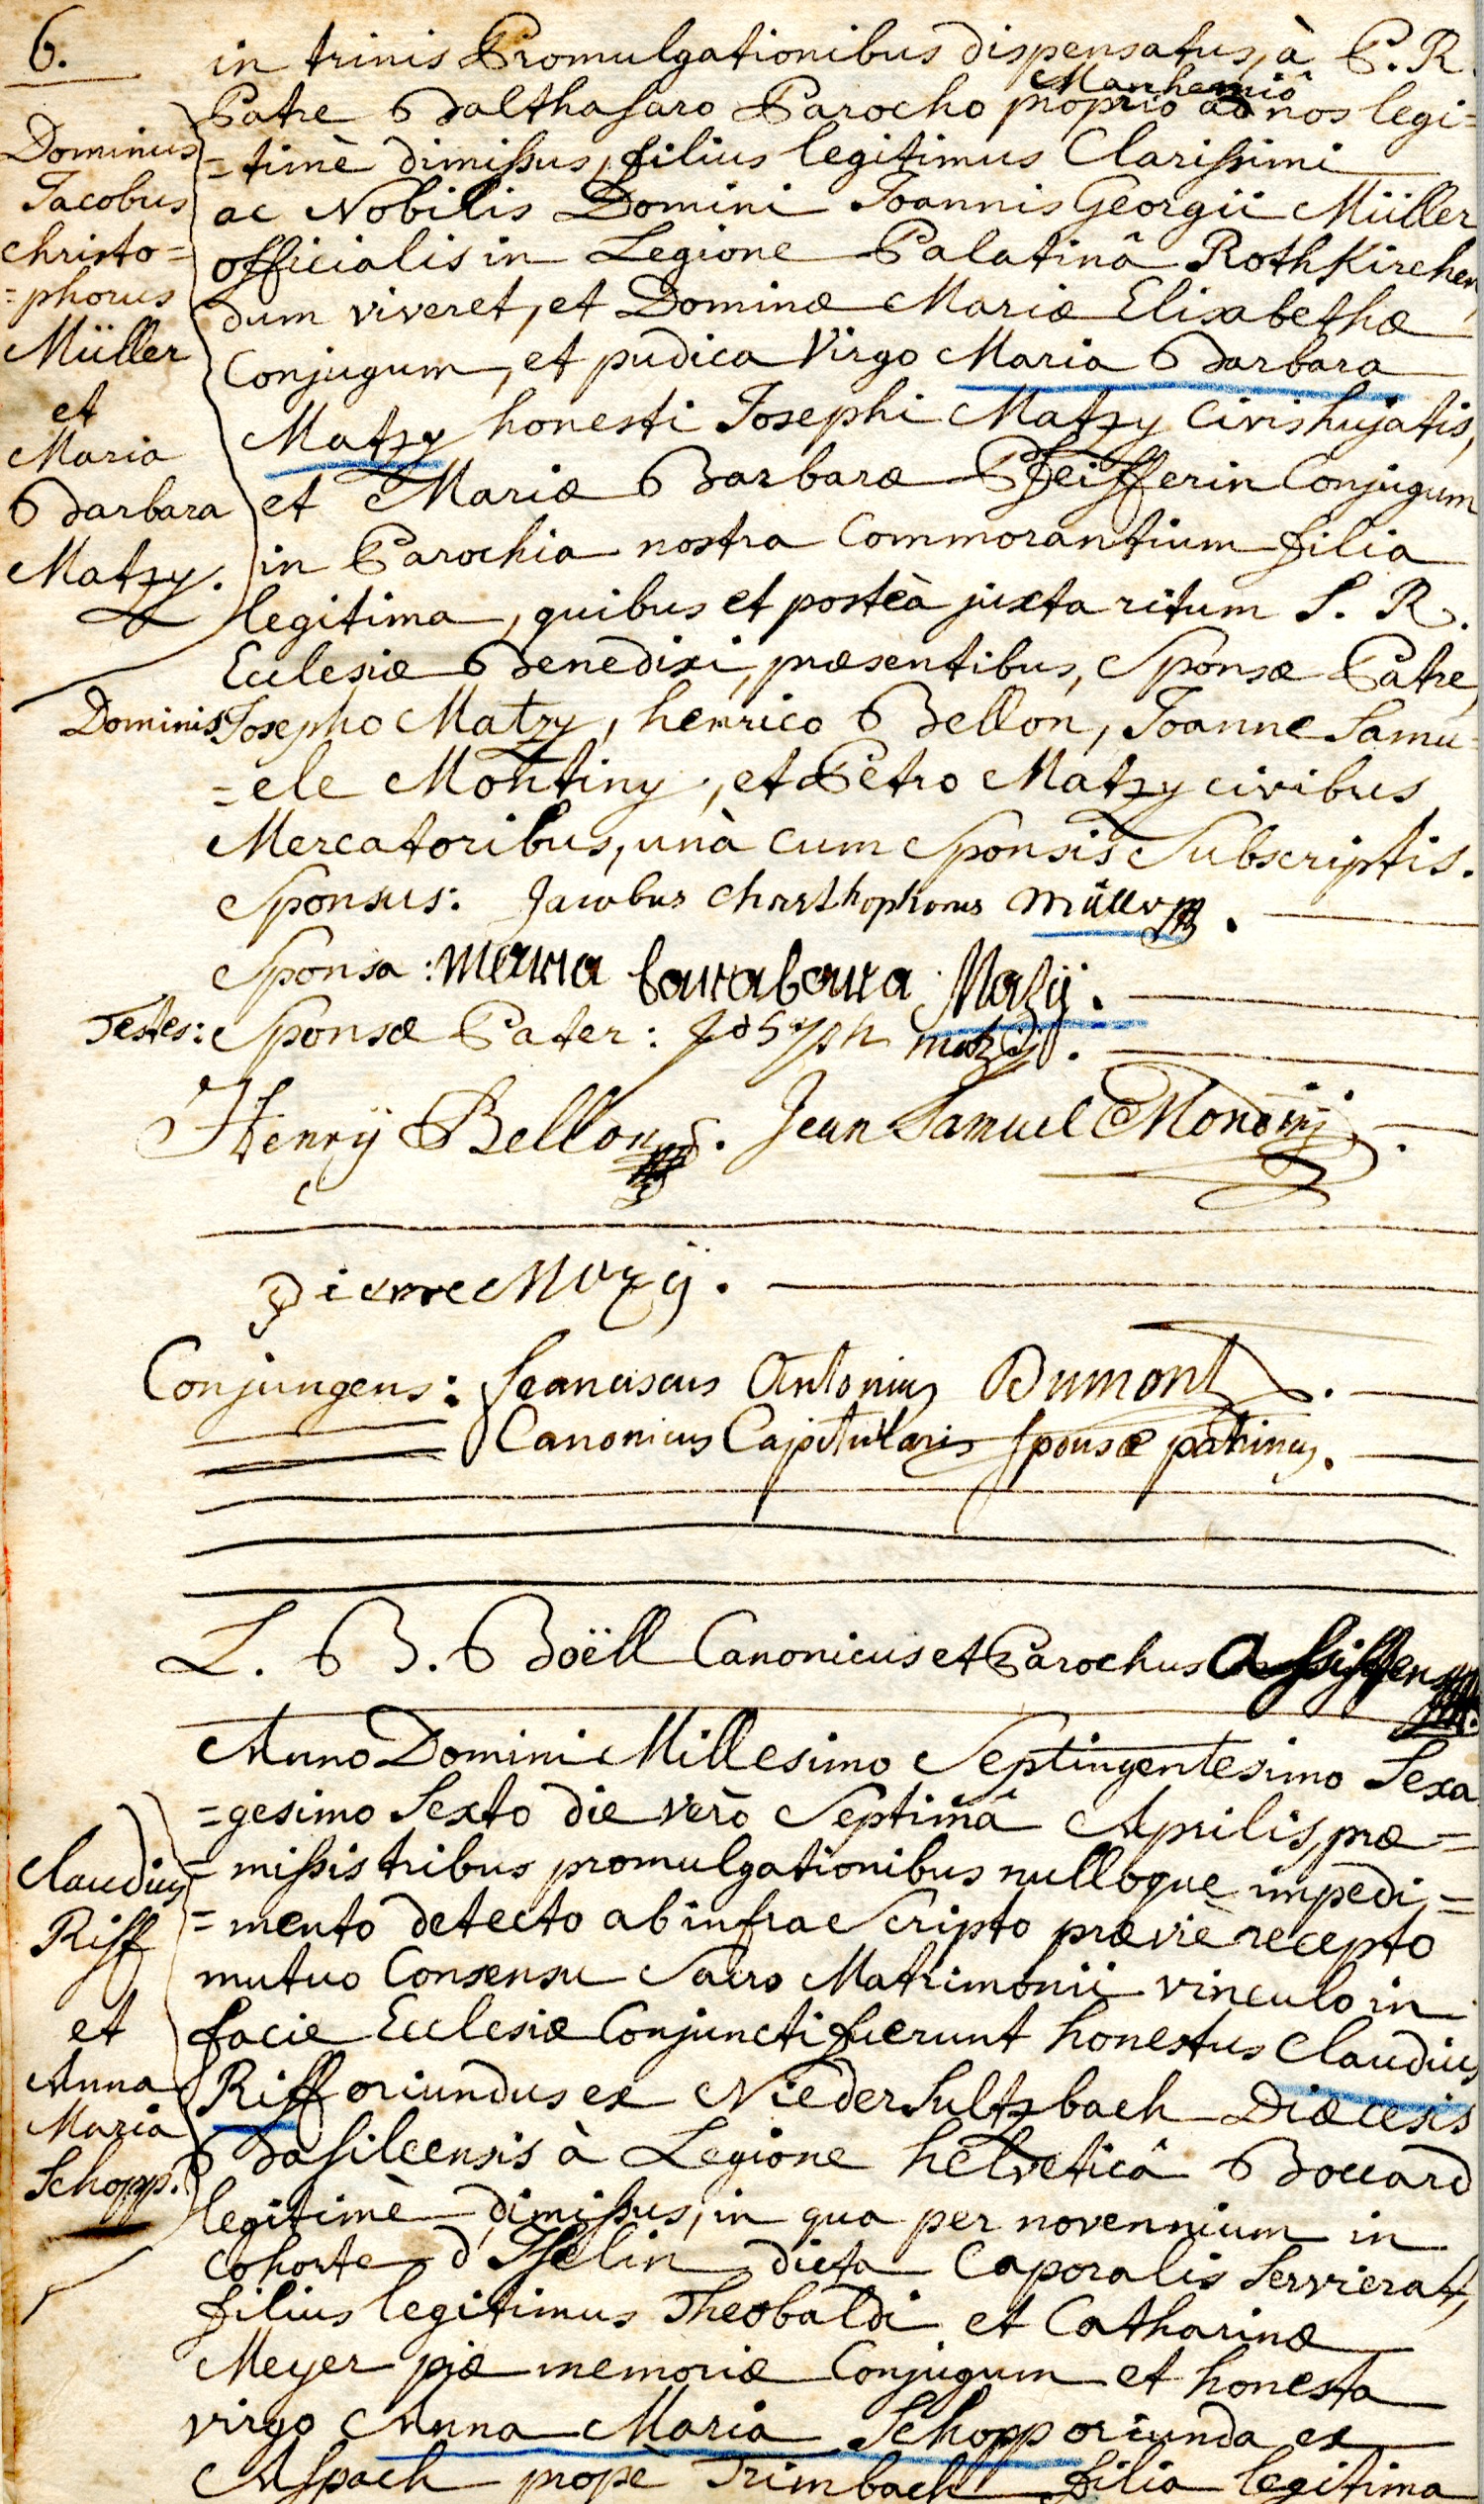 6.
in trinis Promulgationibus dispensatus, à P. R.
Manhemiô
Patre Balthasaro Parocho proprio ad nos legi=
=timè dimissus, filius legitimus Clarissimi
ac Nobilis Domini Joannis Georgii Müller
officialis in Legione Palatinâ RothKirchen
dum viveret, et Dominæ Mariæ Elisabethæ
Conjugum, et pudica Virgo Maria Barbara
Matzy honesti Josephi Matzy Civis hujatis,
et Mariæ Barbaræ Pfeifferin Conjugum
in Parochia nostra Commorantium filia
legitima, quibus et posteà juxta ritum S. R.
Ecclesiæ Benedixi, præsentibus, Sponsæ Patre,
Dominis Josepho Matzy, henrico Bellon, Joanne Samu=
=ele Montiny, et Petro Matzy civibus
Mercatoribus, unà cum Sponsis Subscriptis.
Dominus
Jacobus
christo=
=phorus
Müller
et
Maria
Barbara
Matzy.
Sponsus: Jacobus Christhophorus Müller.
Sponsa: Maria barabara Mazÿ.
Testes: Sponsæ Pater: Joseph matzij.
Henrÿ Bellon. Jean Samuel Montinij.
Pierre Mazÿ.
Conjungens: Franciscus Antonius Dumont.
Canonicus Capitularis sponsæ patrinus.
L. B. Boëll Canonicus et Parochus assistens
Anno Domini Millesimo Septingentesimo Sexa
=gesimo Sexto die verò Septimâ Aprilis, præ=
=missis tribus promulgationibus nulloque impedi=
=mento detecto ab infra Scripto præviè recepto
mutuo Consensu Sacro Matrimonii vinculo in
facie Ecclesiæ Conjuncti fuerunt honestus Claudius
Riff oriundus ex NiederSultzbach Diæcesis
Basileensis à Legione helveticâ Boccard
legitimè dimissus, in qua per novennium in
Cohorte d'Iselin dicta Caporalis Servierat,
filius legitimus Theobaldi et Catharinæ
Meyer piæ memoriæ Conjugum et honesta
virgo Anna Maria Schopp oriunda ex
Aspach propè Trimbach filia legitima
Claudius
Riff
et
Anna
Maria
Schopp.